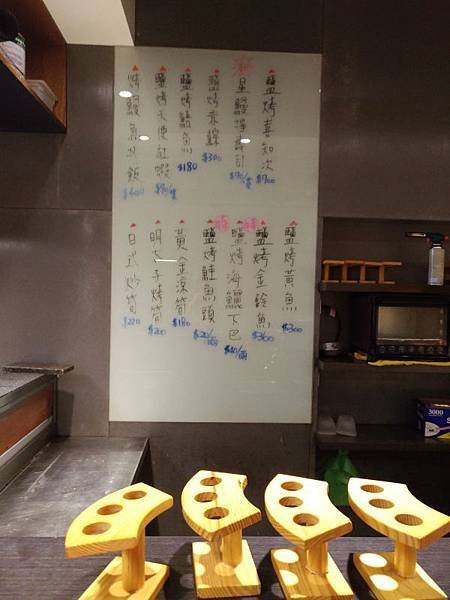 鹽烤喜知次
$700
新
星鰻握壽司
$90/貫
鹽烤香鯖
$300
鹽烤鯖魚
$180
鹽烤天使紅蝦
$90/隻
烤鰻魚丼飯
$400
鹽烤黃魚
$300
鹽烤金鯧魚
$360
鹽烤海鱺下巴
鹽烤鮭魚頭
黃金涼筍
$180
明太子烤筍
$200
日式炒筍
$220
3000